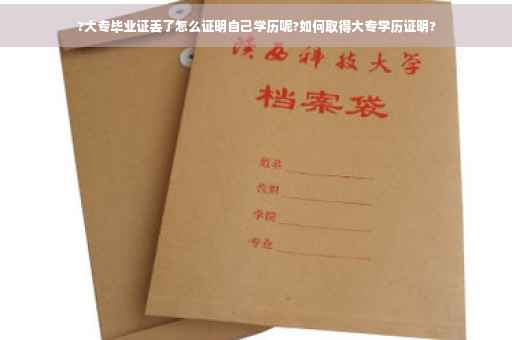 ?大专毕业证丢了怎么证明自己学历呢?如何取得大专学历证明?
陕西科技大学
档案袋
姓名
学院
专业